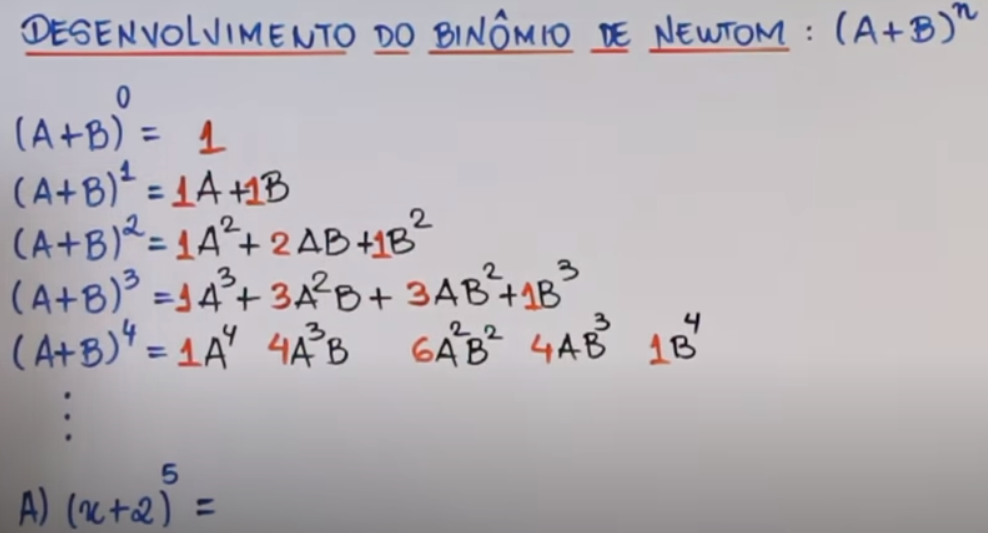 DESENVOLVIMENTO DO BINÔMIO DE NEWTOM : (A+B)ⁿ
(A+B)⁰ = 1
(A+B)¹ = 1A+1B
(A+B)² = 1A²+ 2AB+1B²
(A+B)³ =1A³+ 3A²B+ 3AB²+1B³
(A+B)⁴ = 1A⁴ 4A³B 6A²B² 4AB³ 1B⁴
⋮
A) (x+2)⁵ =